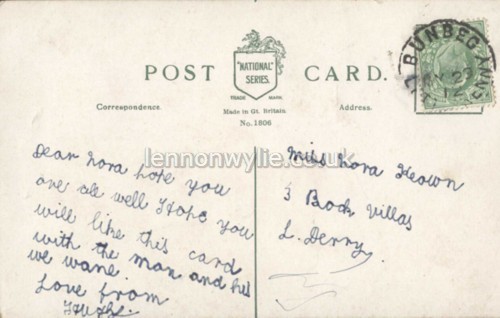 POST CARD.
"NATIONAL"
SERIES.
TRADE MARK.
Correspondence.
Made in Gt. Britain.
Address.
No. 1806
BUNBEG
lennonwylie.co.uk
Dear Nora hope you
are all well I hope you
will like this card
with the man and his
we wane.
Love from
Hugh.
Miss Nora Keown
3 Villas
L. Derry.